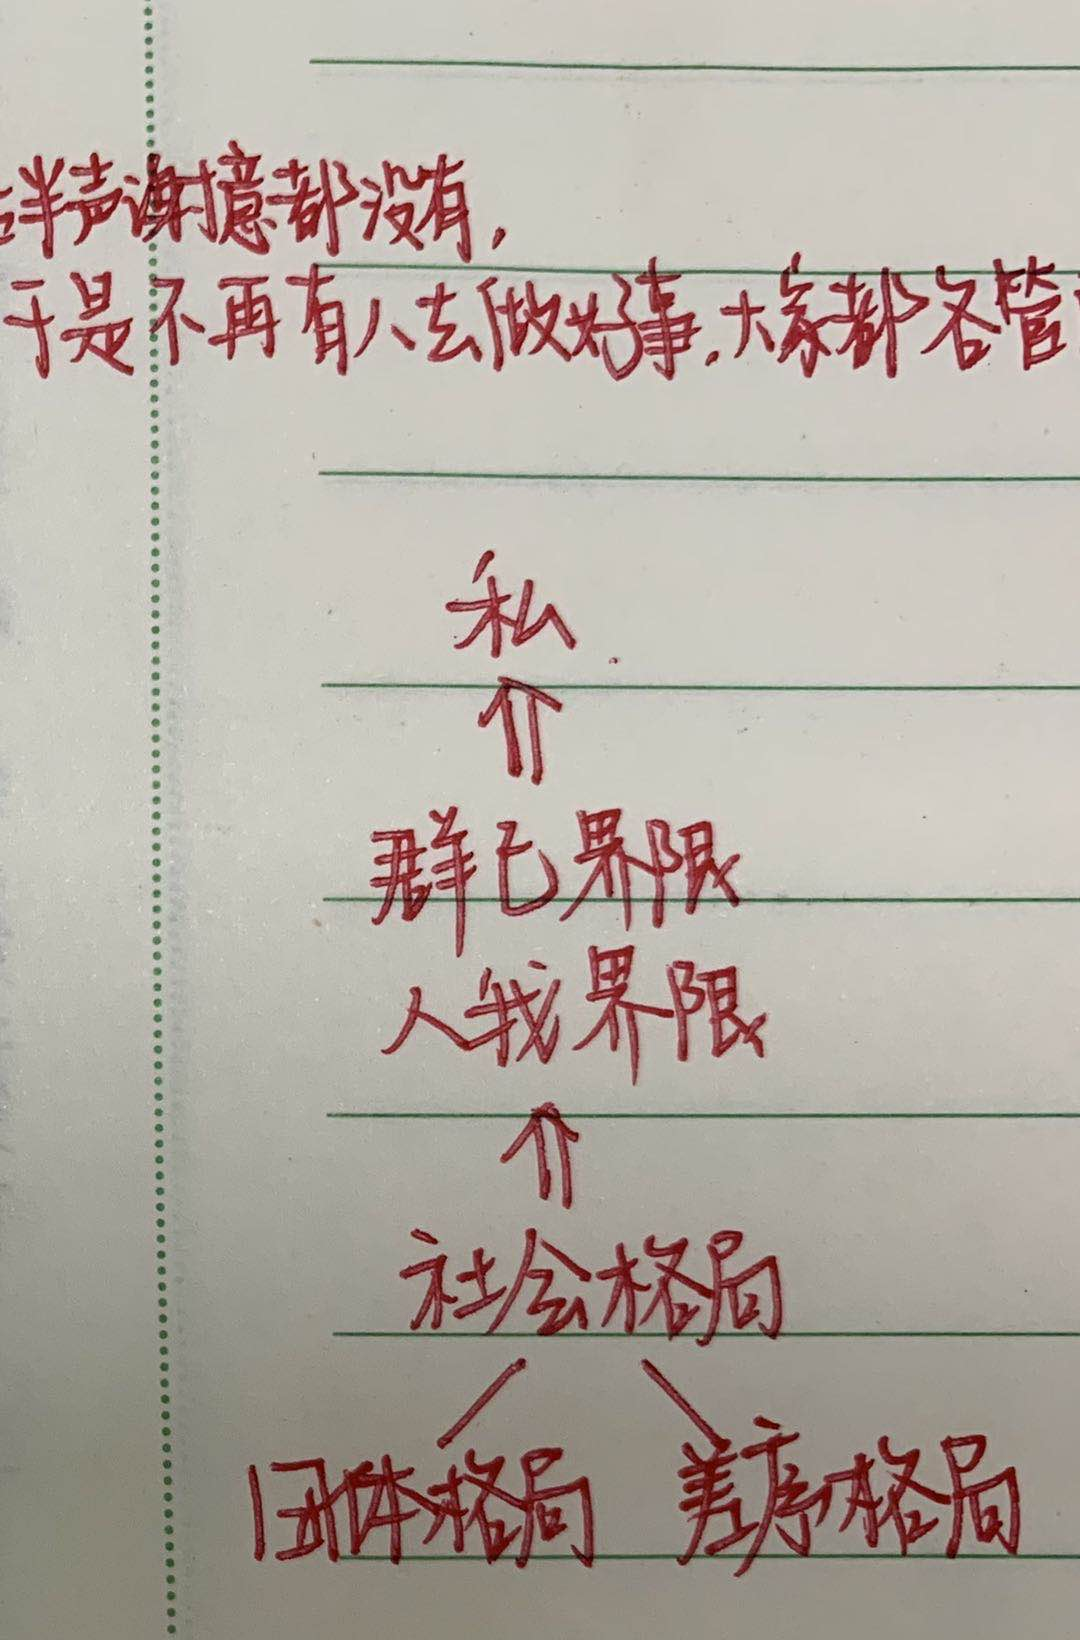 半声谢意都没有,
于是不再有人去做好事.大家都各管
私
⇑
群己界限
人我界限
⇑
社会格局
团体格局 差序格局